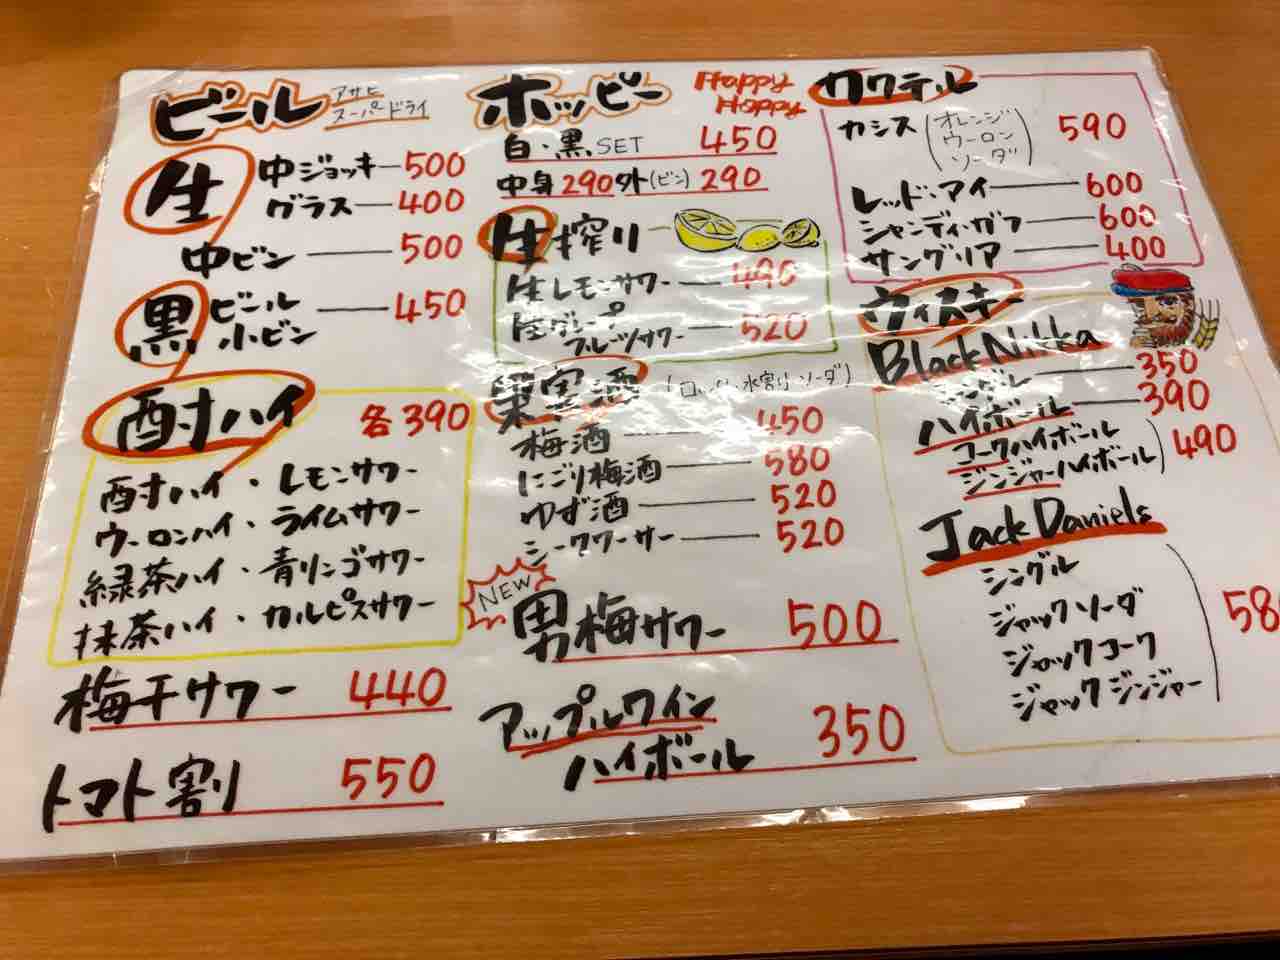 ビール アサヒ
スーパードライ
生 中ジョッキ 500
グラス 400
中ビン 500
黒 ビール
小ビン 450
酎ハイ 各390
酎ハイ・レモンサワー
ウーロンハイ・ライムサワー
緑茶ハイ・青リンゴサワー
抹茶ハイ・カルピスサワー
梅干サワー 440
トマト割り 550
ホッピー Happy
Hoppy
白・黒SET 450
中身290外(ビン)290
生搾り
生レモンサワー 490
生グレープ
フルーツサワー 520
果実酒 (ロック・水割り・ソーダ)
梅酒 450
にごり梅酒 580
ゆず酒 520
シークワーサー 520
NEW
男梅サワー 500
アップルワイン
ハイボール 350
カクテル
カシス(オレンジ
ウーロン
ソーダ) 590
レッド・アイ 600
シャンディ・ガフ 600
サングリア 400
ウィスキー
Black Nikka
シングル 350
ハイボール 390
コークハイボール
ジンジャーハイボール) 490
Jack Daniels
シングル
ジャックソーダ
ジャックコーク
ジャックジンジャー
58